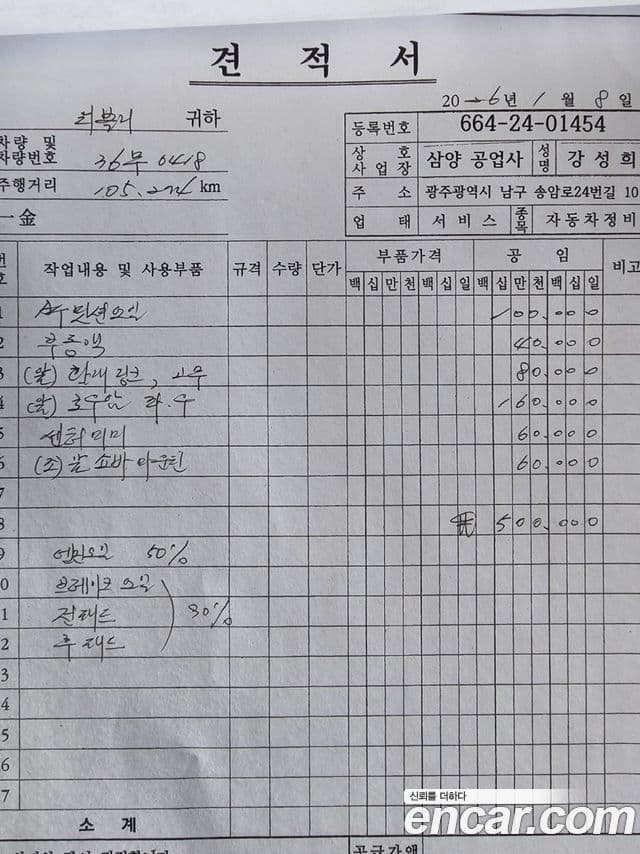 견 적 서
20 26년 1 월 8 일
귀하
등록번호 664-24-01454
차량 및
차량번호 36무 0418
상 호
사 업 장 삼양 공업사 성명 강성희
주행거리 105.274 km
주 소 광주광역시 남구 송암로24번길 10
一金
업 태 서비스 종목 자동차정비
번호 작업내용 및 사용부품 규격 수량 단가 부품가격 공 임 비고
백 십 만 천 백 십 일 백 십 만 천 백 십 일
1 밋션오일 100.000
2 부동액 40.000
3 (앞) 활대링크, 고무 80.000
4 (앞) 로우암 좌.우 160.000
5 센터미미 60.000
6 (조) 앞 쇼바 마운틴 60.000
7
8 ₩ 500.000
9 엔진오일 50%
0 브레이크오일
1 전패드 30%
2 후패드
3
4
5
6
7
소 계
공급가액
신뢰를 더하다
encar.com